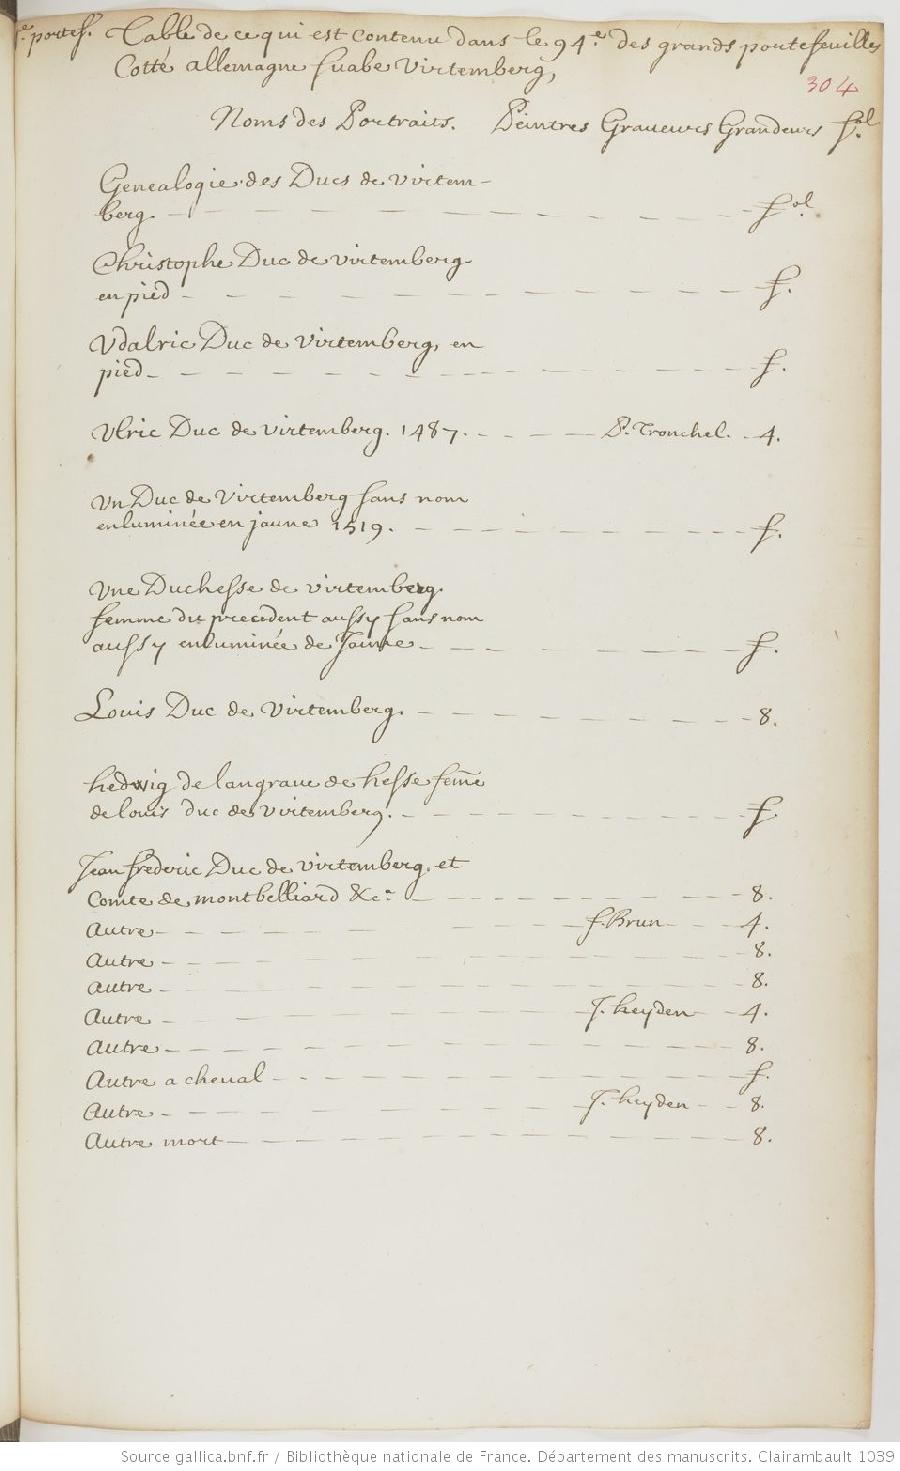 e. portef. Table de ce qui est contenu dans le 94.e des grands portefeuilles
Cotté allemagne suabe Virtemberg,
304
Noms des Portraits. Peintres Graveurs Grandeurs f.ol
Genealogie des Ducs de virtem-
berg - f.ol
Christophe Duc de virtemberg
en pied - f.
Vdalric Duc de Virtemberg, en
pied - f.
Vlric Duc de virtemberg. 1487. - P. Tronchel. - 4.
Vn Duc de Virtemberg sans nom
enluminée en jaune 1519. - f.
Vne Duchesse de virtemberg
femme du precedent aussy sans nom
aussy enluminée de Jaune - f.
Louis Duc de Virtemberg. - 8.
hedwig de langrave de hesse fem̄e
de louis duc de virtemberg. - f
Jean frederic Duc de virtemberg, et
Comte de montbelliard &c.a - 8.
Autre - f. Brun - 4.
Autre - 8.
Autre - 8.
Autre - J. heyden - 4.
Autre - 8.
Autre a cheval - f.
Autre - J. heyden - 8.
Autre mort - 8.
Source gallica.bnf.fr / Bibliothèque nationale de France. Département des manuscrits. Clairambault 1039